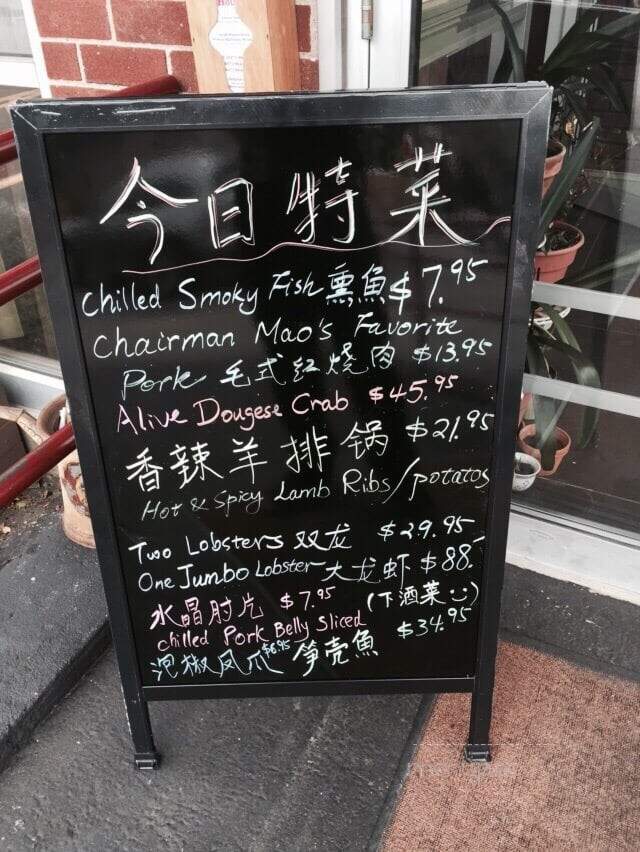 今日特菜
Chilled Smoky Fish 熏魚 $7.95
Chairman Mao's Favorite
Pork 毛式红烧肉 $13.95
Alive Dougese Crab $45.95
香辣羊排锅 $21.95
Hot & Spicy Lamb Ribs/potatos
Two Lobsters 双龙 $29.95
One Jumbo Lobster 大龙虾 $88.
水晶肘片 $7.95 (下酒菜)
chilled Pork Belly Sliced
泡椒凤爪 $6.95 笋壳魚 $34.95